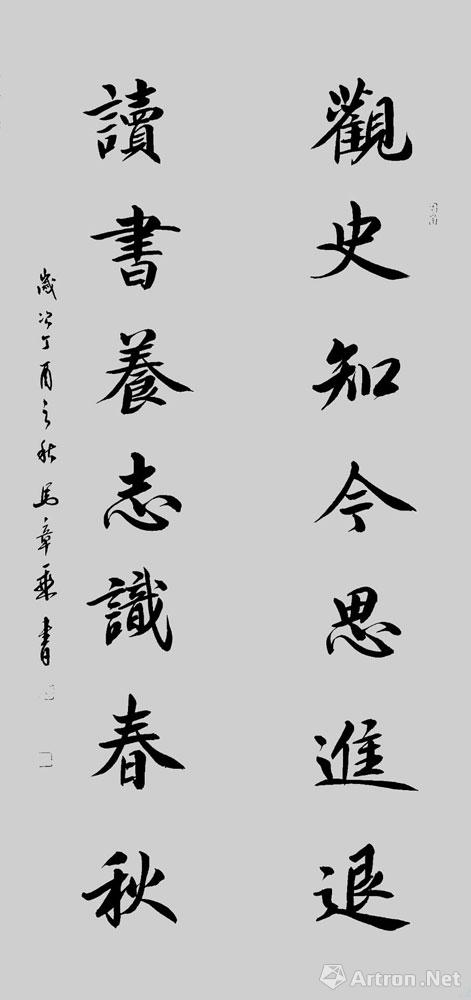 觀史知今思進退
讀書養志識春秋
歲次丁酉之秋馬章乘書
Artron.Net